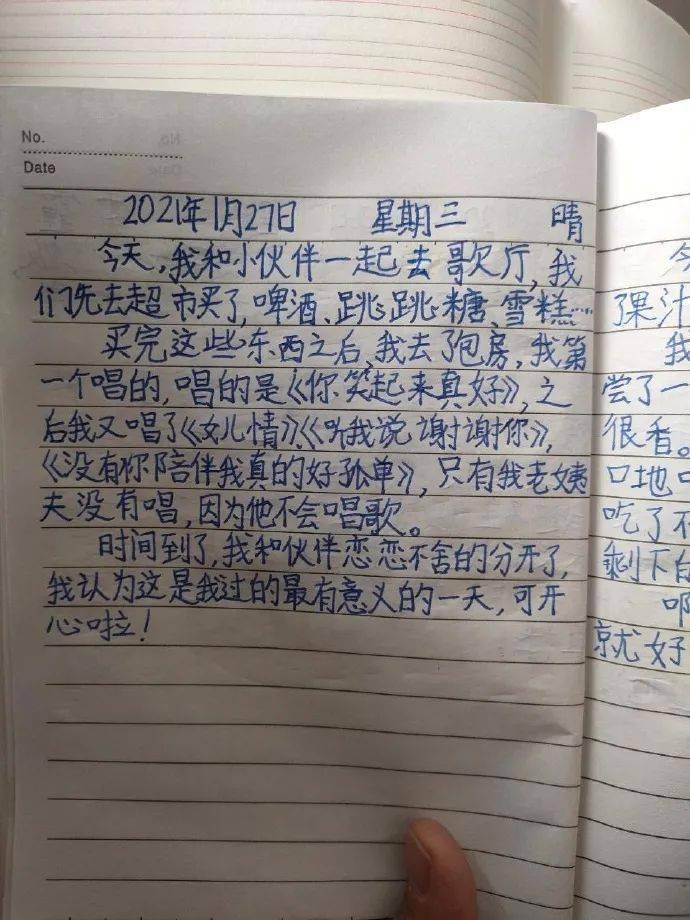 No.
Date
2021年1月27日 星期三 晴
今天,我和小伙伴一起去歌厅,我
们先去超市买了,啤酒、跳跳糖、雪糕……
买完这些东西之后,我去了包房,我第
一个唱的,唱的是《你笑起来真好》,之
后我又唱了《女儿情》、《听我说谢谢你》,
《没有你陪伴我真的好孤单》,只有我老姨
夫没有唱,因为他不会唱歌。
时间到了,我和伙伴恋恋不舍的分开了,
我认为这是我过的最有意义的一天,可开
心啦!
今
了果汁
我
尝了一
很香。
口地
吃了不
剩下
就好